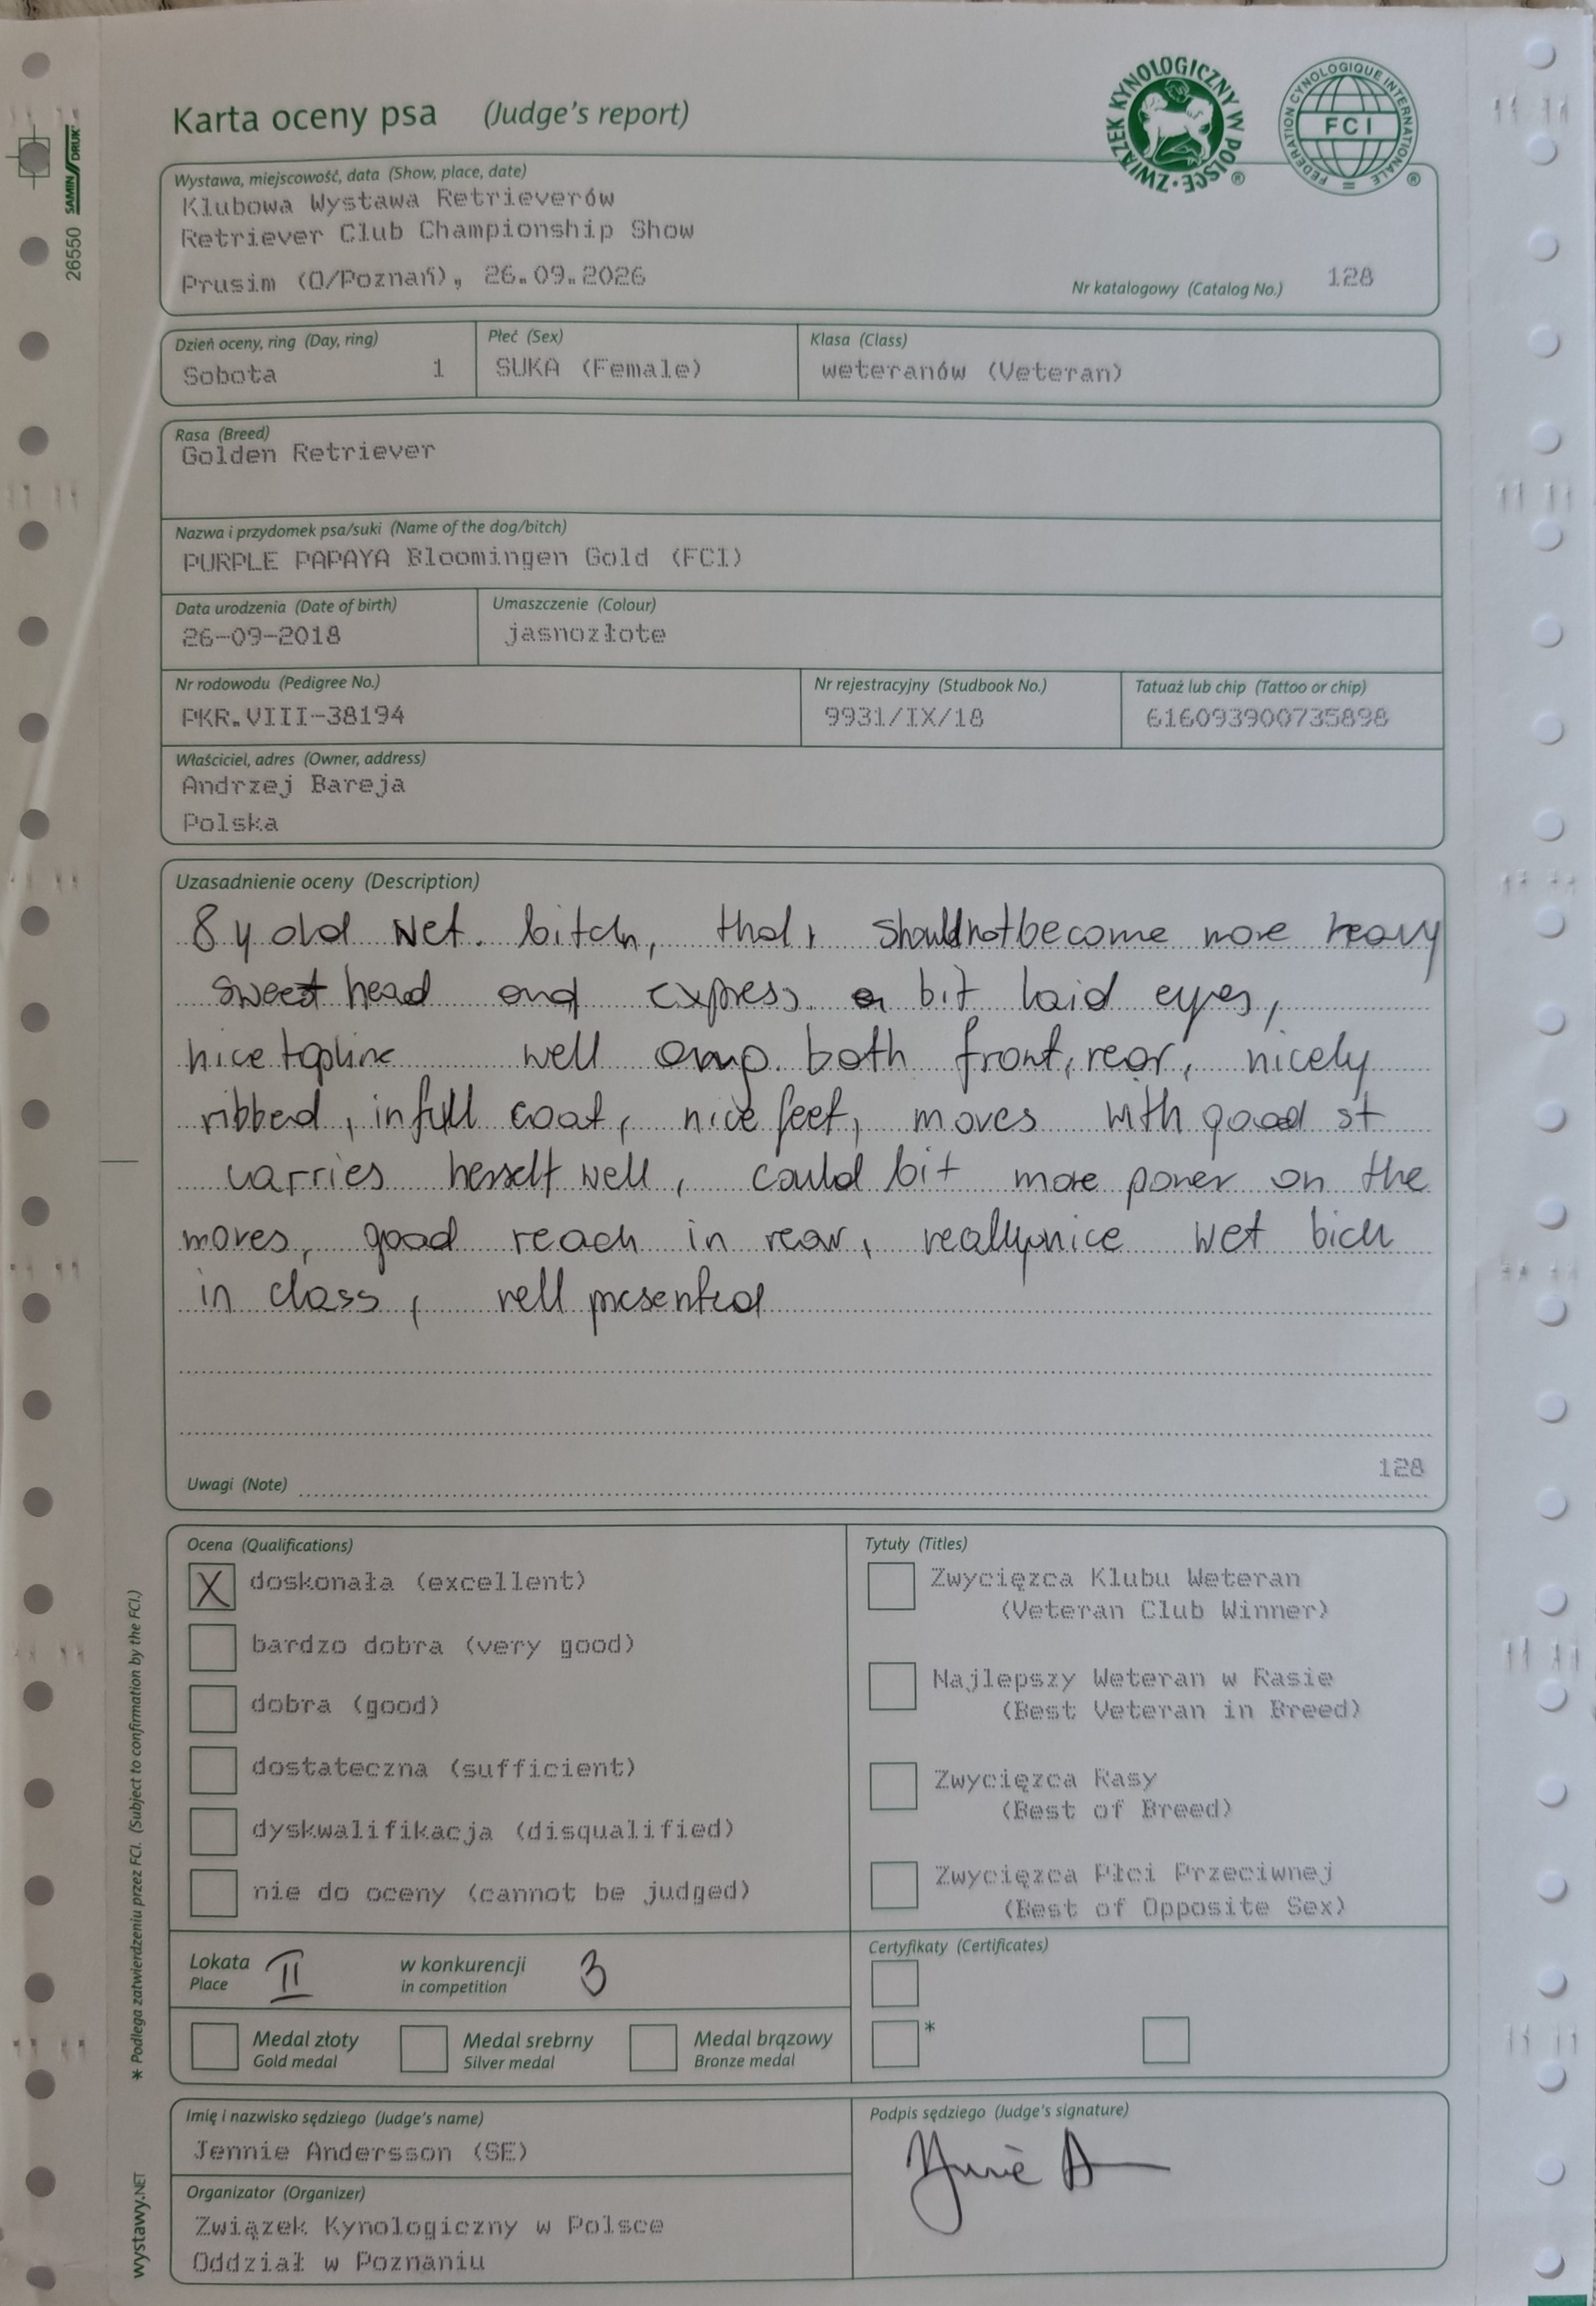 Karta oceny psa (Judge's report)
ZWIĄZEK KYNOLOGICZNY W POLSCE ®
FEDERATION CYNOLOGIQUE INTERNATIONALE FCI ®
26550 SAMINDRUK
Wystawa, miejscowość, data (Show, place, date)
Klubowa Wystawa Retrieverów
Retriever Club Championship Show
Prusim (O/Poznań), 26.09.2026
Nr katalogowy (Catalog No.) 128
Dzień oceny, ring (Day, ring) Płeć (Sex) Klasa (Class)
Sobota 1 SUKA (Female) weteranów (Veteran)
Rasa (Breed)
Golden Retriever
Nazwa i przydomek psa/suki (Name of the dog/bitch)
PURPLE PAPAYA Bloomingen Gold (FCI)
Data urodzenia (Date of birth) Umaszczenie (Colour)
26-09-2018 jasnozłote
Nr rodowodu (Pedigree No.) Nr rejestracyjny (Studbook No.) Tatuaż lub chip (Tattoo or chip)
PKR.VIII-38194 9931/IX/18 616093900735898
Właściciel, adres (Owner, address)
Andrzej Bareja
Polska
Uzasadnienie oceny (Description)
8 y old wet. bitch, that, should not become more heavy
sweet head and express. a bit laid eyes,
nice topline well amp. both front, rear, nicely
ribbed, in full coat, nice feet, moves with good st
carries herself well, could bit more power on the
moves, good reach in rear, really nice wet bich
in class, well presented
128
Uwagi (Note)
Ocena (Qualifications) Tytuły (Titles)
X doskonała (excellent)
bardzo dobra (very good)
dobra (good)
dostateczna (sufficient)
dyskwalifikacja (disqualified)
nie do oceny (cannot be judged)
Zwycięzca Klubu Weteran
(Veteran Club Winner)
Najlepszy Weteran w Rasie
(Best Veteran in Breed)
Zwycięzca Rasy
(Best of Breed)
Zwycięzca Płci Przeciwnej
(Best of Opposite Sex)
Lokata II w konkurencji 3
Place in competition
Certyfikaty (Certificates)
*
Medal złoty Medal srebrny Medal brązowy
Gold medal Silver medal Bronze medal
* Podlega zatwierdzeniu przez FCI. (Subject to confirmation by the FCI.)
Imię i nazwisko sędziego (Judge's name) Podpis sędziego (Judge's signature)
Jennie Andersson (SE)
Organizator (Organizer)
Związek Kynologiczny w Polsce
Oddział w Poznaniu
wystawy.NET